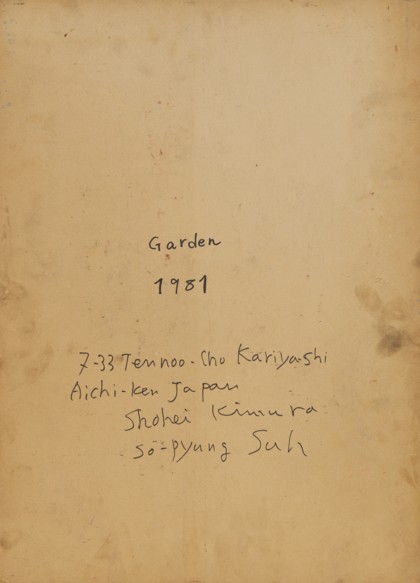 Garden
1981
7-33 Tennoo-Cho Kariya-shi
Aichi-ken Japan
Shohei Kimura
So-pyung Suh